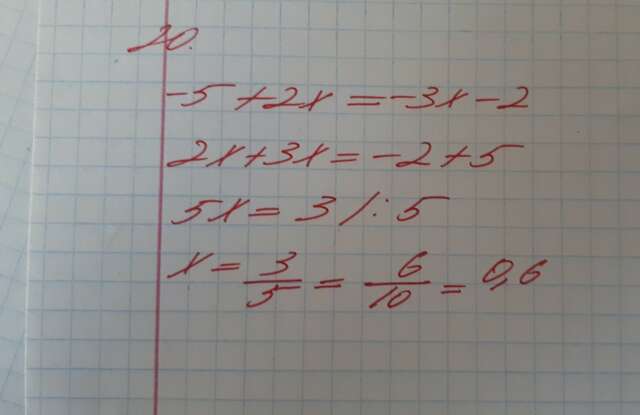 20.
-5+2x=-3x-2
2x+3x=-2+5
5x=3/:5
x=3/5=6/10=0,6